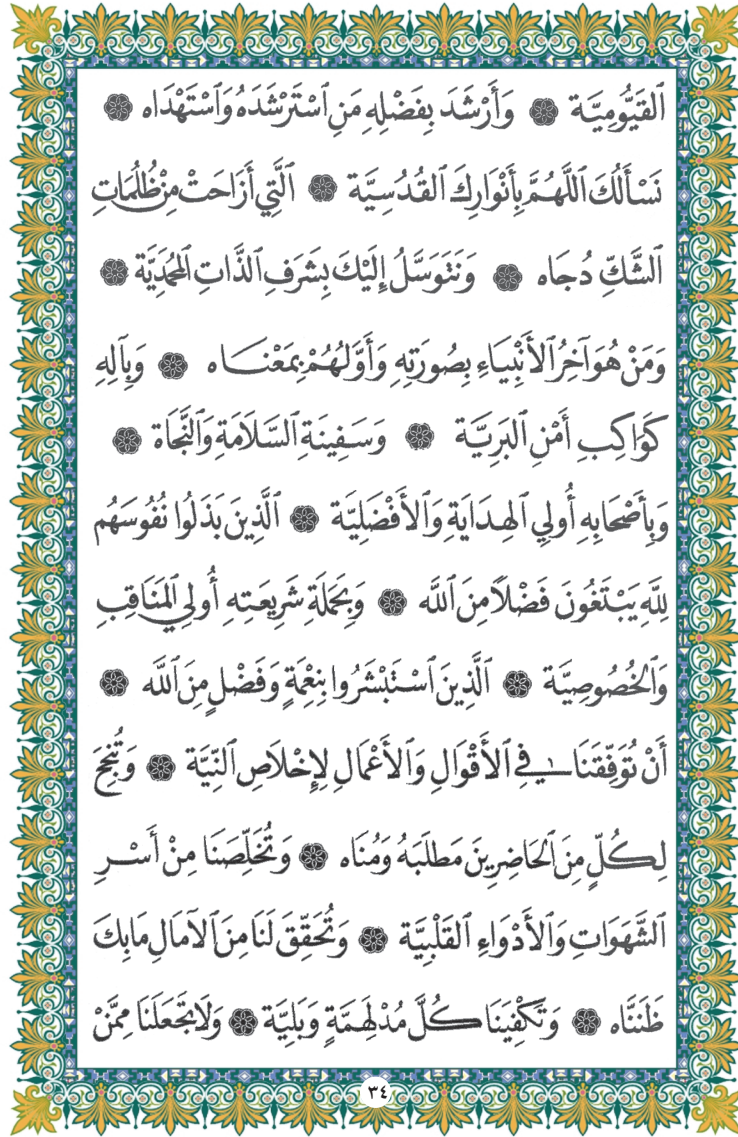 ٱلقَيُّومِيَّة ۞ وَأَرْشَدَ بِفَضْلِهِ مَنِ ٱسْتَرْشَدَهُ وَٱسْتَهْدَاه ۞
نَسْأَلُكَ ٱللَّهُمَّ بِأَنْوَارِكَ ٱلقُدُسِيَّة ۞ ٱلَّتِي أَزَاحَتْ مِنْ ظُلُمَاتِ
ٱلشَّكِّ دُجَاه ۞ وَنَتَوَسَّلُ إِلَيْكَ بِشَرَفِ ٱلذَّاتِ ٱلمُحَمَّدِيَّة ۞
وَمَنْ هُوَ آخِرُ ٱلأَنْبِيَاءِ بِصُورَتِهِ وَأَوَّلُهُمْ بِمَعْنَاه ۞ وَبِآلِهِ
كَوَاكِبِ أَمْنِ ٱلبَرِيَّة ۞ وَسَفِينَةِ ٱلسَّلَامَةِ وَٱلنَّجَاة ۞
وَبِأَصْحَابِهِ أُولِي ٱلهِدَايَةِ وَٱلأَفْضَلِيَّة ۞ ٱلَّذِينَ بَذَلُوا نُفُوسَهُم
لِلَّهِ يَبْتَغُونَ فَضْلًا مِنَ ٱللَّه ۞ وَبِحَمَلَةِ شَرِيعَتِهِ أُولِي ٱلمَنَاقِبِ
وَٱلخُصُوصِيَّة ۞ ٱلَّذِينَ ٱسْتَبْشَرُوا بِنِعْمَةٍ وَفَضْلٍ مِنَ ٱللَّه ۞
أَنْ تُوَفِّقَنَا فِي ٱلأَقْوَالِ وَٱلأَعْمَالِ لِإِخْلَاصِ ٱلنِّيَّة ۞ وَتُنْجِحَ
لِكُلٍّ مِنَ ٱلحَاضِرِينَ مَطْلَبَهُ وَمُنَاه ۞ وَتُخَلِّصَنَا مِنْ أَسْرِ
ٱلشَّهَوَاتِ وَٱلأَدْوَاءِ ٱلقَلْبِيَّة ۞ وَتُحَقِّقَ لَنَا مِنَ ٱلآمَالِ مَا بِكَ
ظَنَنَّاه ۞ وَتَكْفِيَنَا كُلَّ مُدْلَهِمَّةٍ وَبَلِيَّة ۞ وَلَا تَجْعَلَنَا مِمَّنْ
٣٤